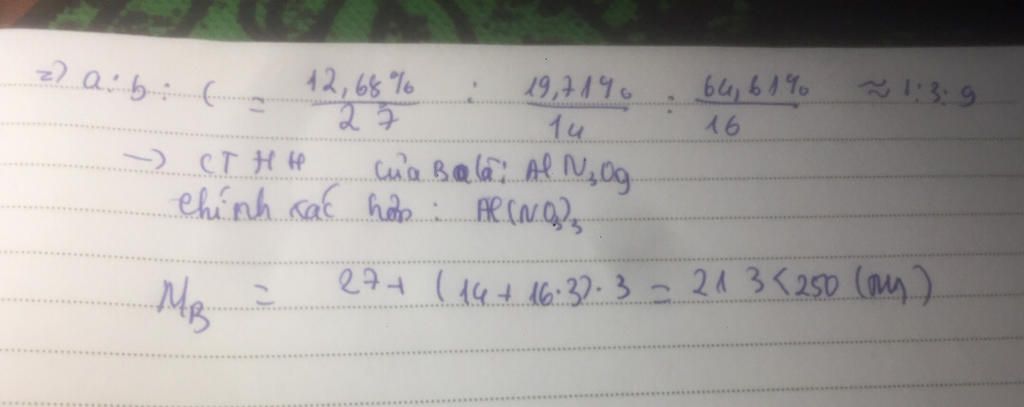 => a : b : c = 12,68% / 27 : 19,71% / 14 : 64,61% / 16 ≈ 1:3:9
-> CTHH của B là: AlN₃O₉
chính xác hơn : Al(NO₃)₃
M_B = 27 + (14 + 16.3).3 = 213 < 250 (tm)